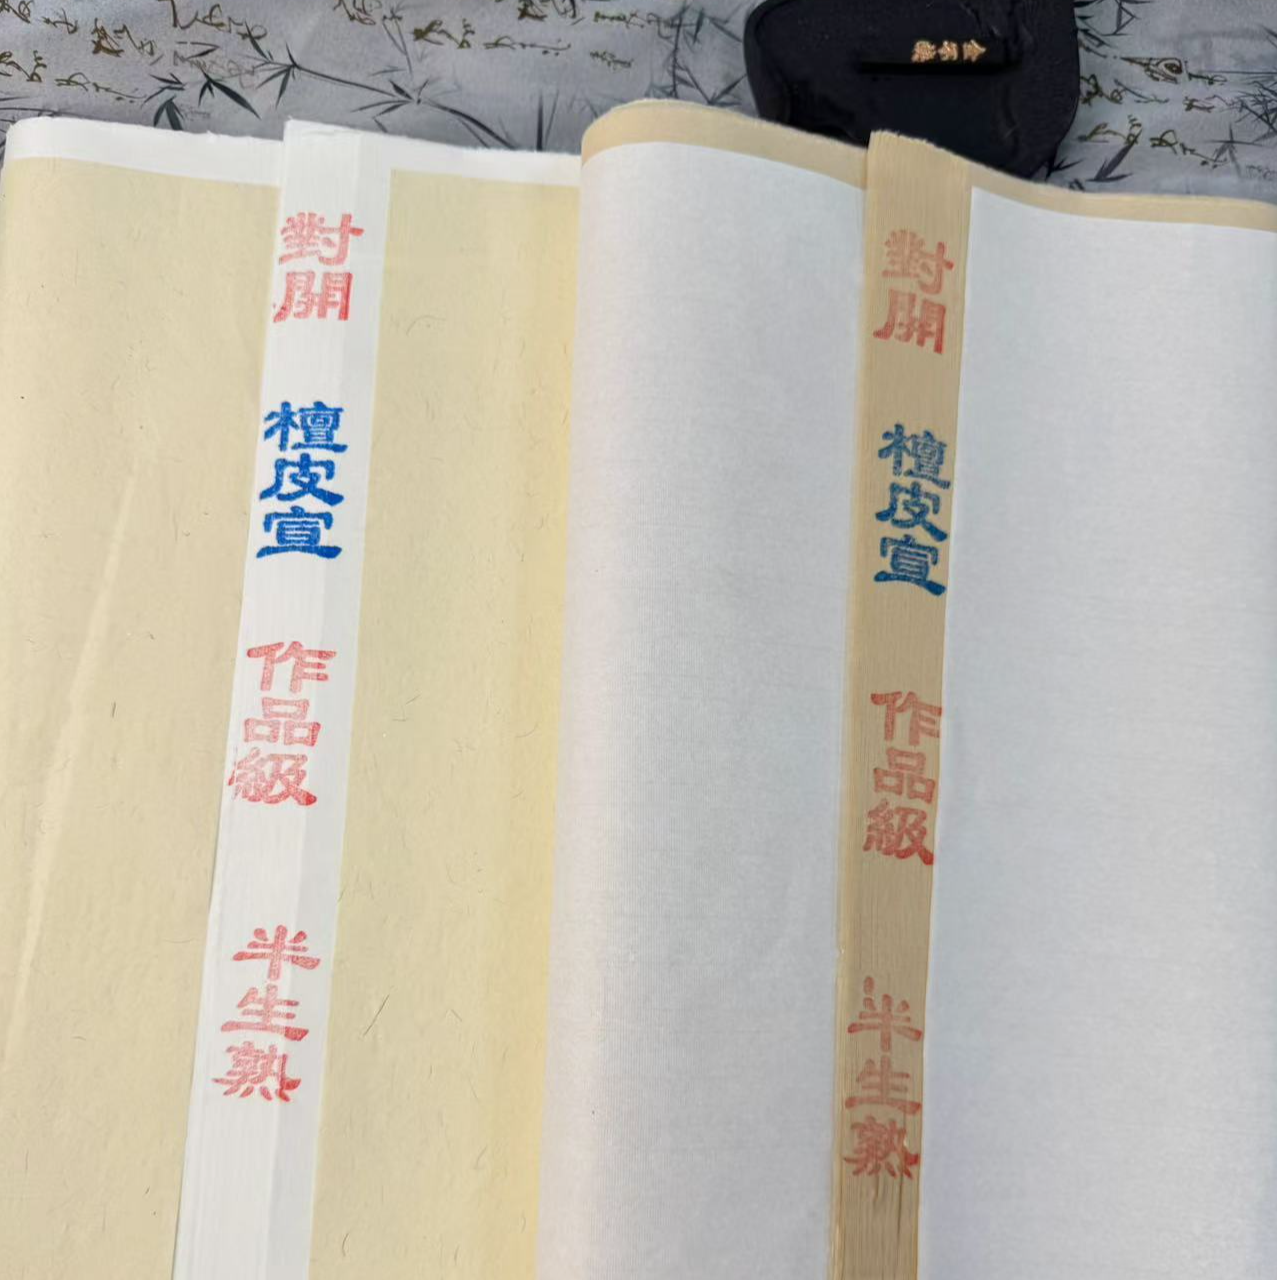 對開
檀皮宣
作品級
半生熟
對開
檀皮宣
作品級
半生熟